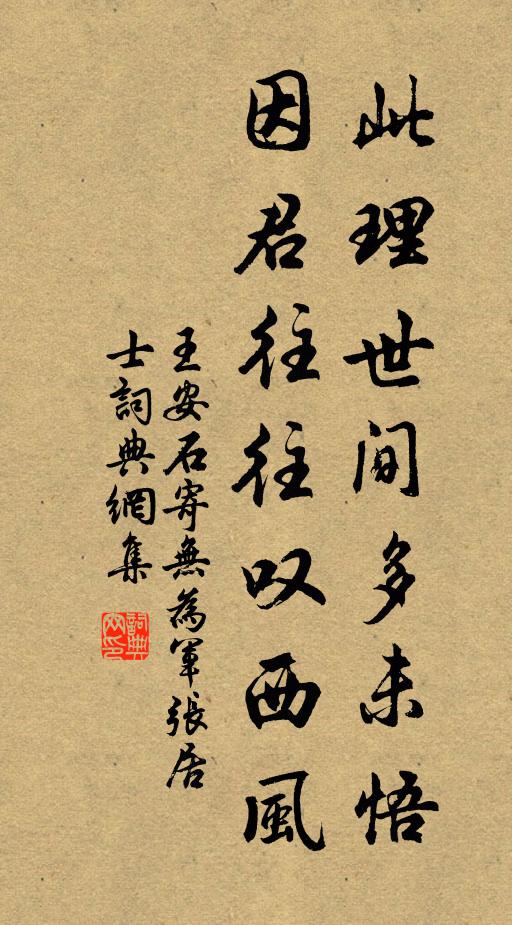 此理世间多未悟
因君往往叹西風
王安石寄無為軍張居
士詞典網集
詞典
网印